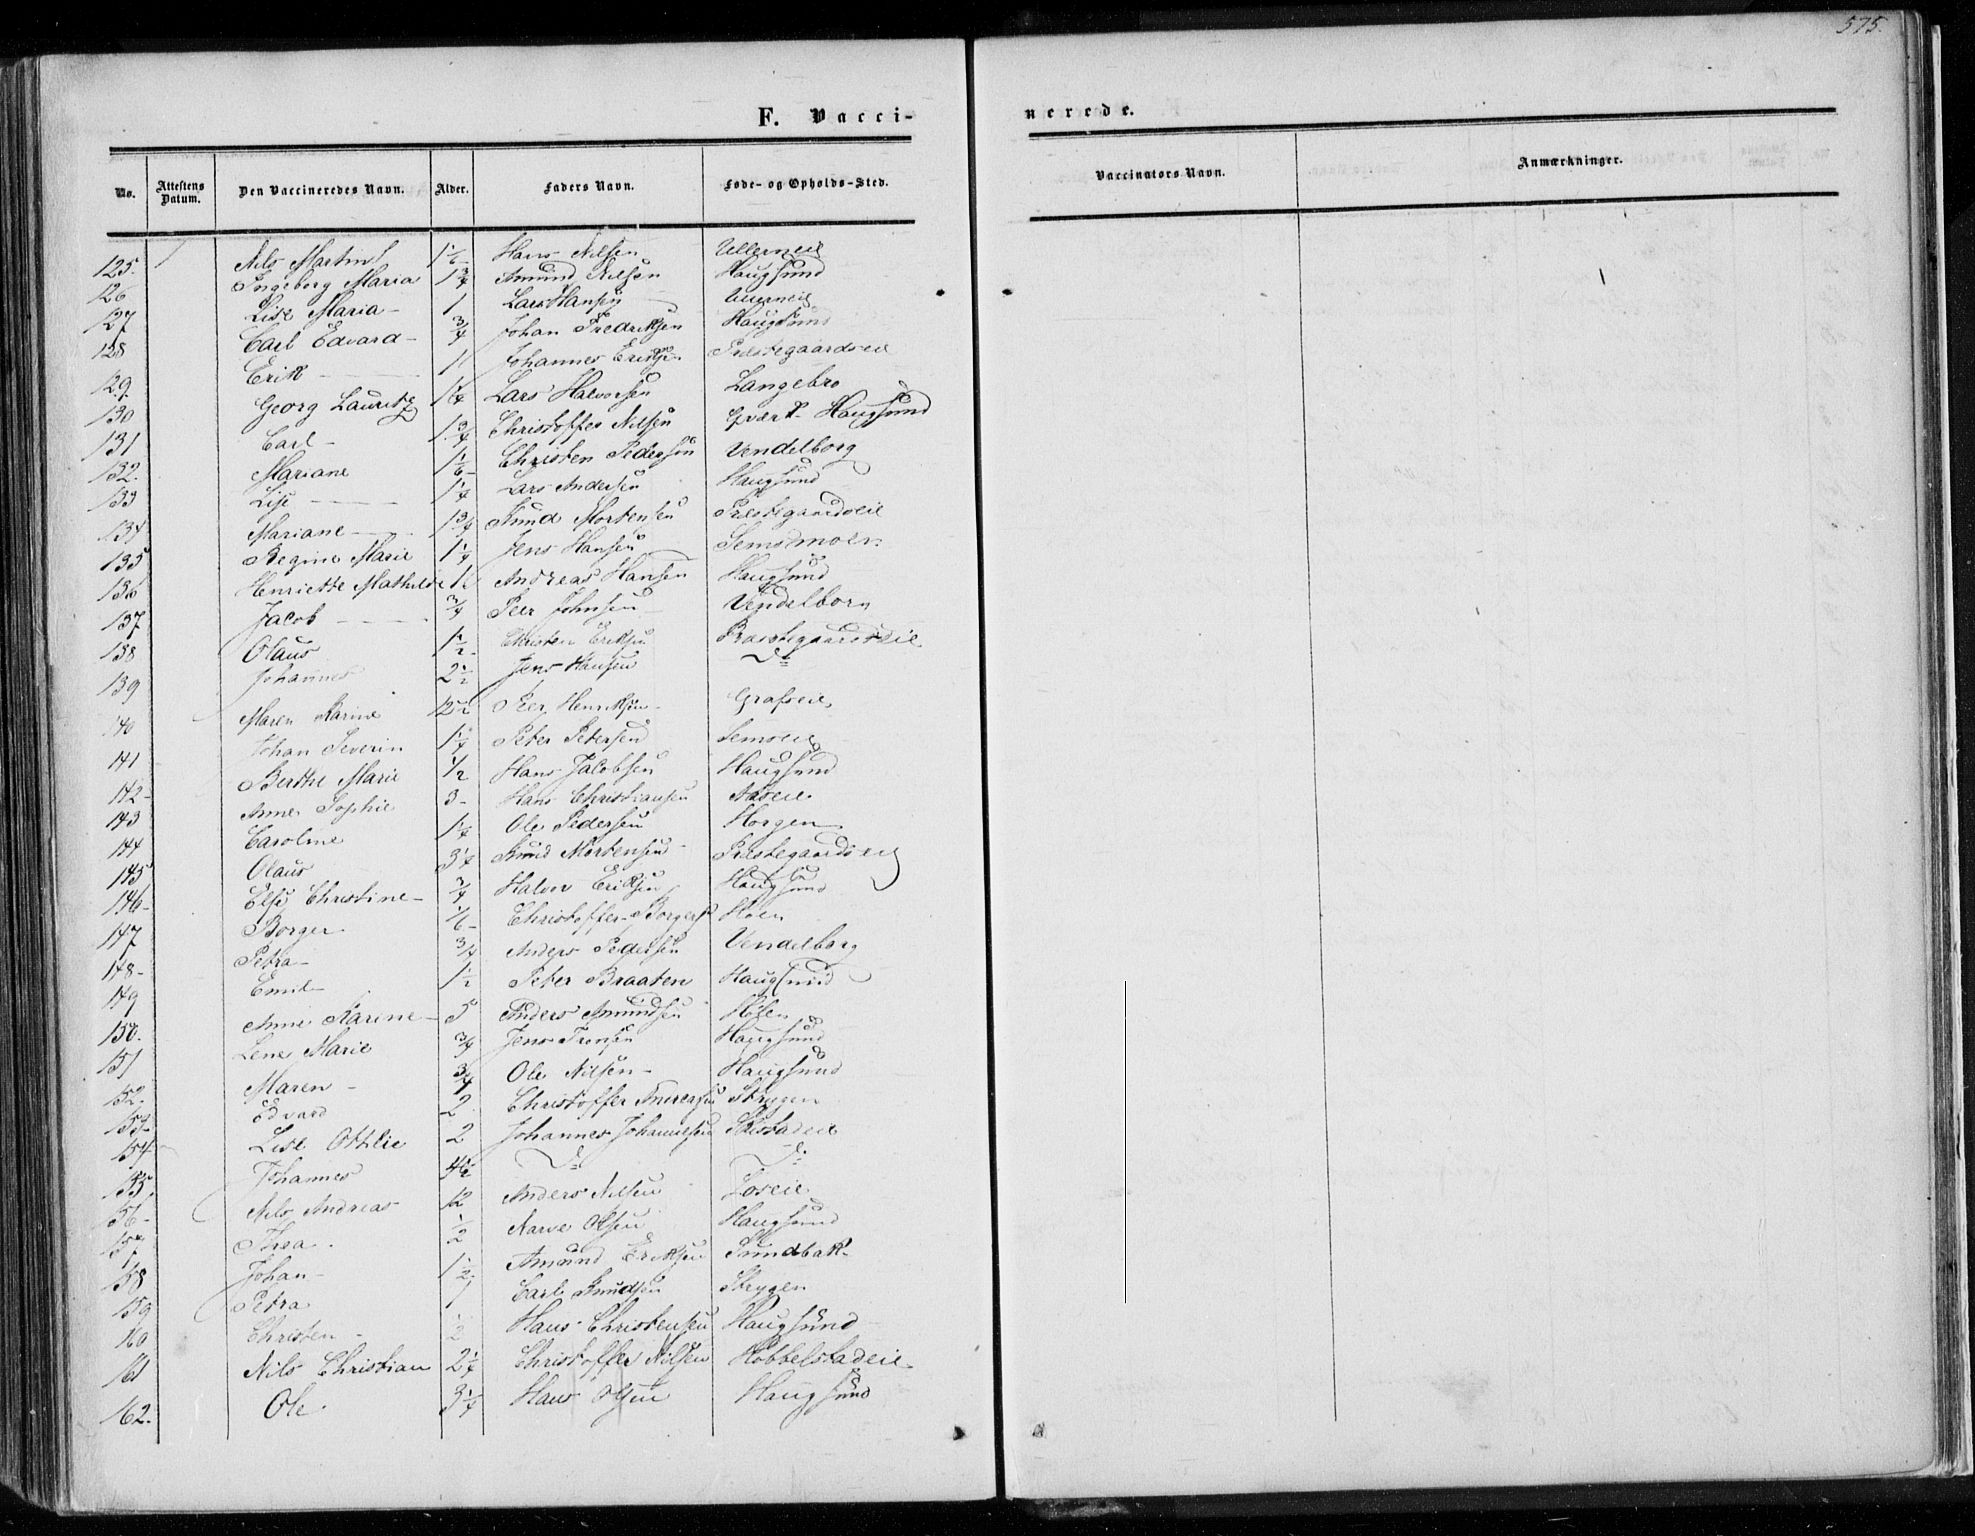 575.
F. Vacci-
nerede.
No.
Attestens Datum.
Den Vaccineredes Navn.
Alder.
Faders Navn.
Føde- og Opholds-Sted.
Vaccinators Navn.
Anmærkninger.
125. Nils Martin 1 1/6 Hans Nilsen Ullerneie
126 Ingeborg Maria 1 3/4 Amund Nilsen Haugsund
127 Lise Maria 1 Lars Hansen Ullerneie
128 Carl Edvard 3/4 Johan Fredriksen Haugsund
129 Erik Johannes Eriksen Præstegaardseie
130 Georg Lauritz 1 1/4 Lars Halvorsen Langebro
131 Carl 1 3/4 Christoffer Nilsen Haugsund
132. Mariane 1 1/6 Christen Pedersen Vendelborg
133 Lise 1 1/4 Lars Andersen Haugsund
134 Mariane 1 3/4 Knud Mortensen Præstegaardseie
135 Regine Marie 1 1/4 Jens Hansen Semsmoen
136 Henriette Mathilde Andreas Hansen Haugsund
137 Jacob 3/4 Peer Johnsen Vendelborg
138 Olaus 1 1/2 Christen Eriksen Præstegaardseie
139 Johannes 2 1/2 Jens Hansen Do
140 Maren Karine Peer Henriksen Grafseie
141 Johan Severin 1 1/4 Peter Petersen Semseie
142- Berthe Marie 1/2 Hans Jacobsen Haugsund
143 Anne Sophie 3 Hans Christiansen Aaseie
144 Caroline 1 1/4 Ole Pedersen Horgen
145 Olaus 3 1/4 Knud Mortensen Præstegaardseie
146- Else Christine 3/4 Halvor Eriksen Haugsund
147 Borger 1/6 Christoffer Borgers. Høen
148- Petra 3/4 Anders Pedersen Vendelborg
149 Emil 1 1/2 Peter Braaten Haugsund
150. Anne Karine 5 Anders Amundsen Høen
151 Lene Marie 3/4 Jens Jensen Haugsund
152. Maren 3/4 Ole Nilsen Haugsund
153- Edvard 2 Christoffer Andreasen Strygen
154 Lise Ottilie 2 Johannes Johannesen
155. Johannes 4 1/2 Do Do
156- Nils Andreas 12 Anders Nilsen Loseie
157 Thea 1/2 Narve Olsen Haugsund
158 Johan 1 1/2 Amund Eriksen Sundbak
159 Petra 1 Carl Knudsen Strygen
160 Christen 1/2 Hans Christensen Haugsund
161 Nils Christian 2 1/4 Christoffer Nilsen Hobbelstadeie
162. Ole 3 1/4 Hans Olsen Haugsund